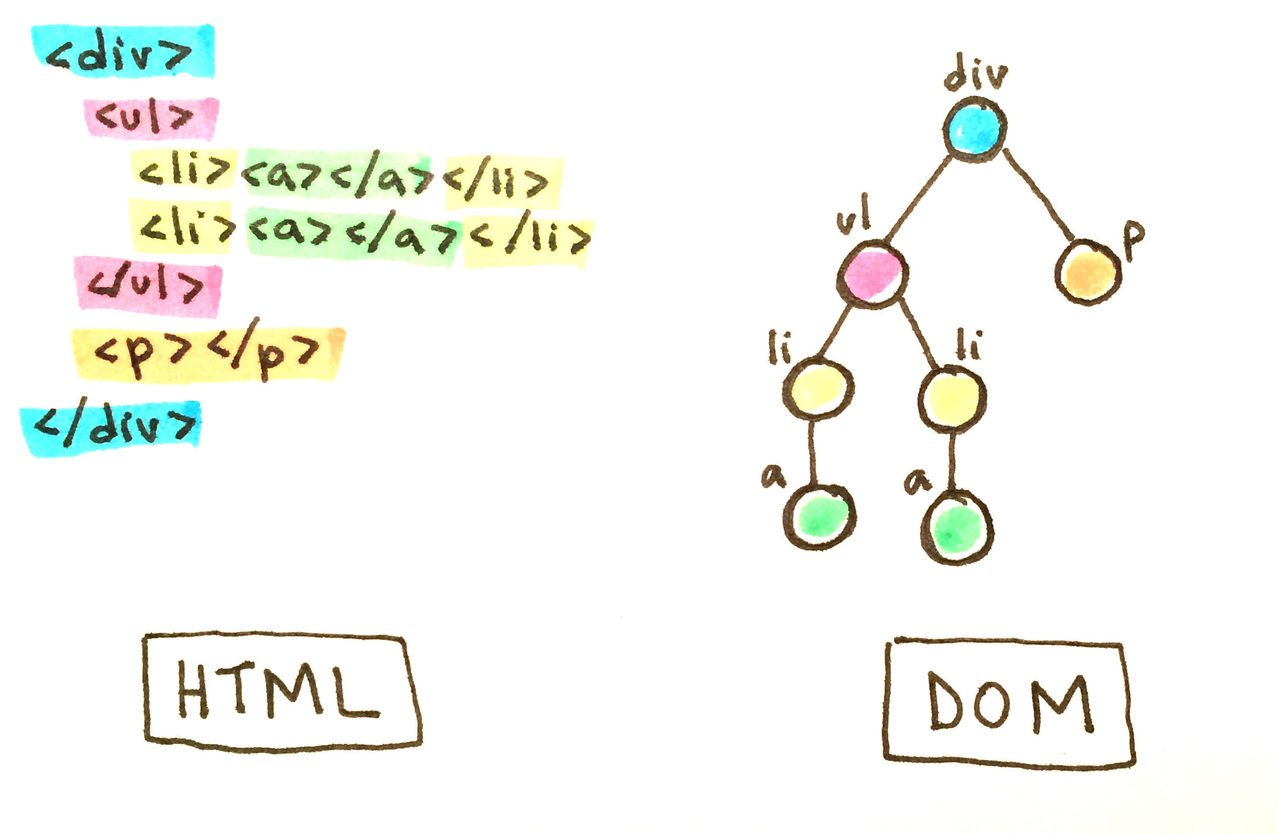 <div>
<ul>
<li><a></a></li>
<li><a></a></li>
</ul>
<p></p>
</div>
HTML
div
ul
p
li
li
a
a
DOM